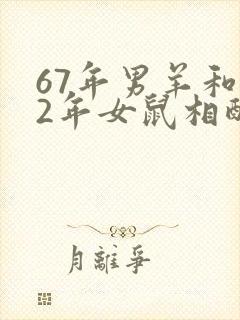 67年男羊和
2年女鼠相配
月離爭